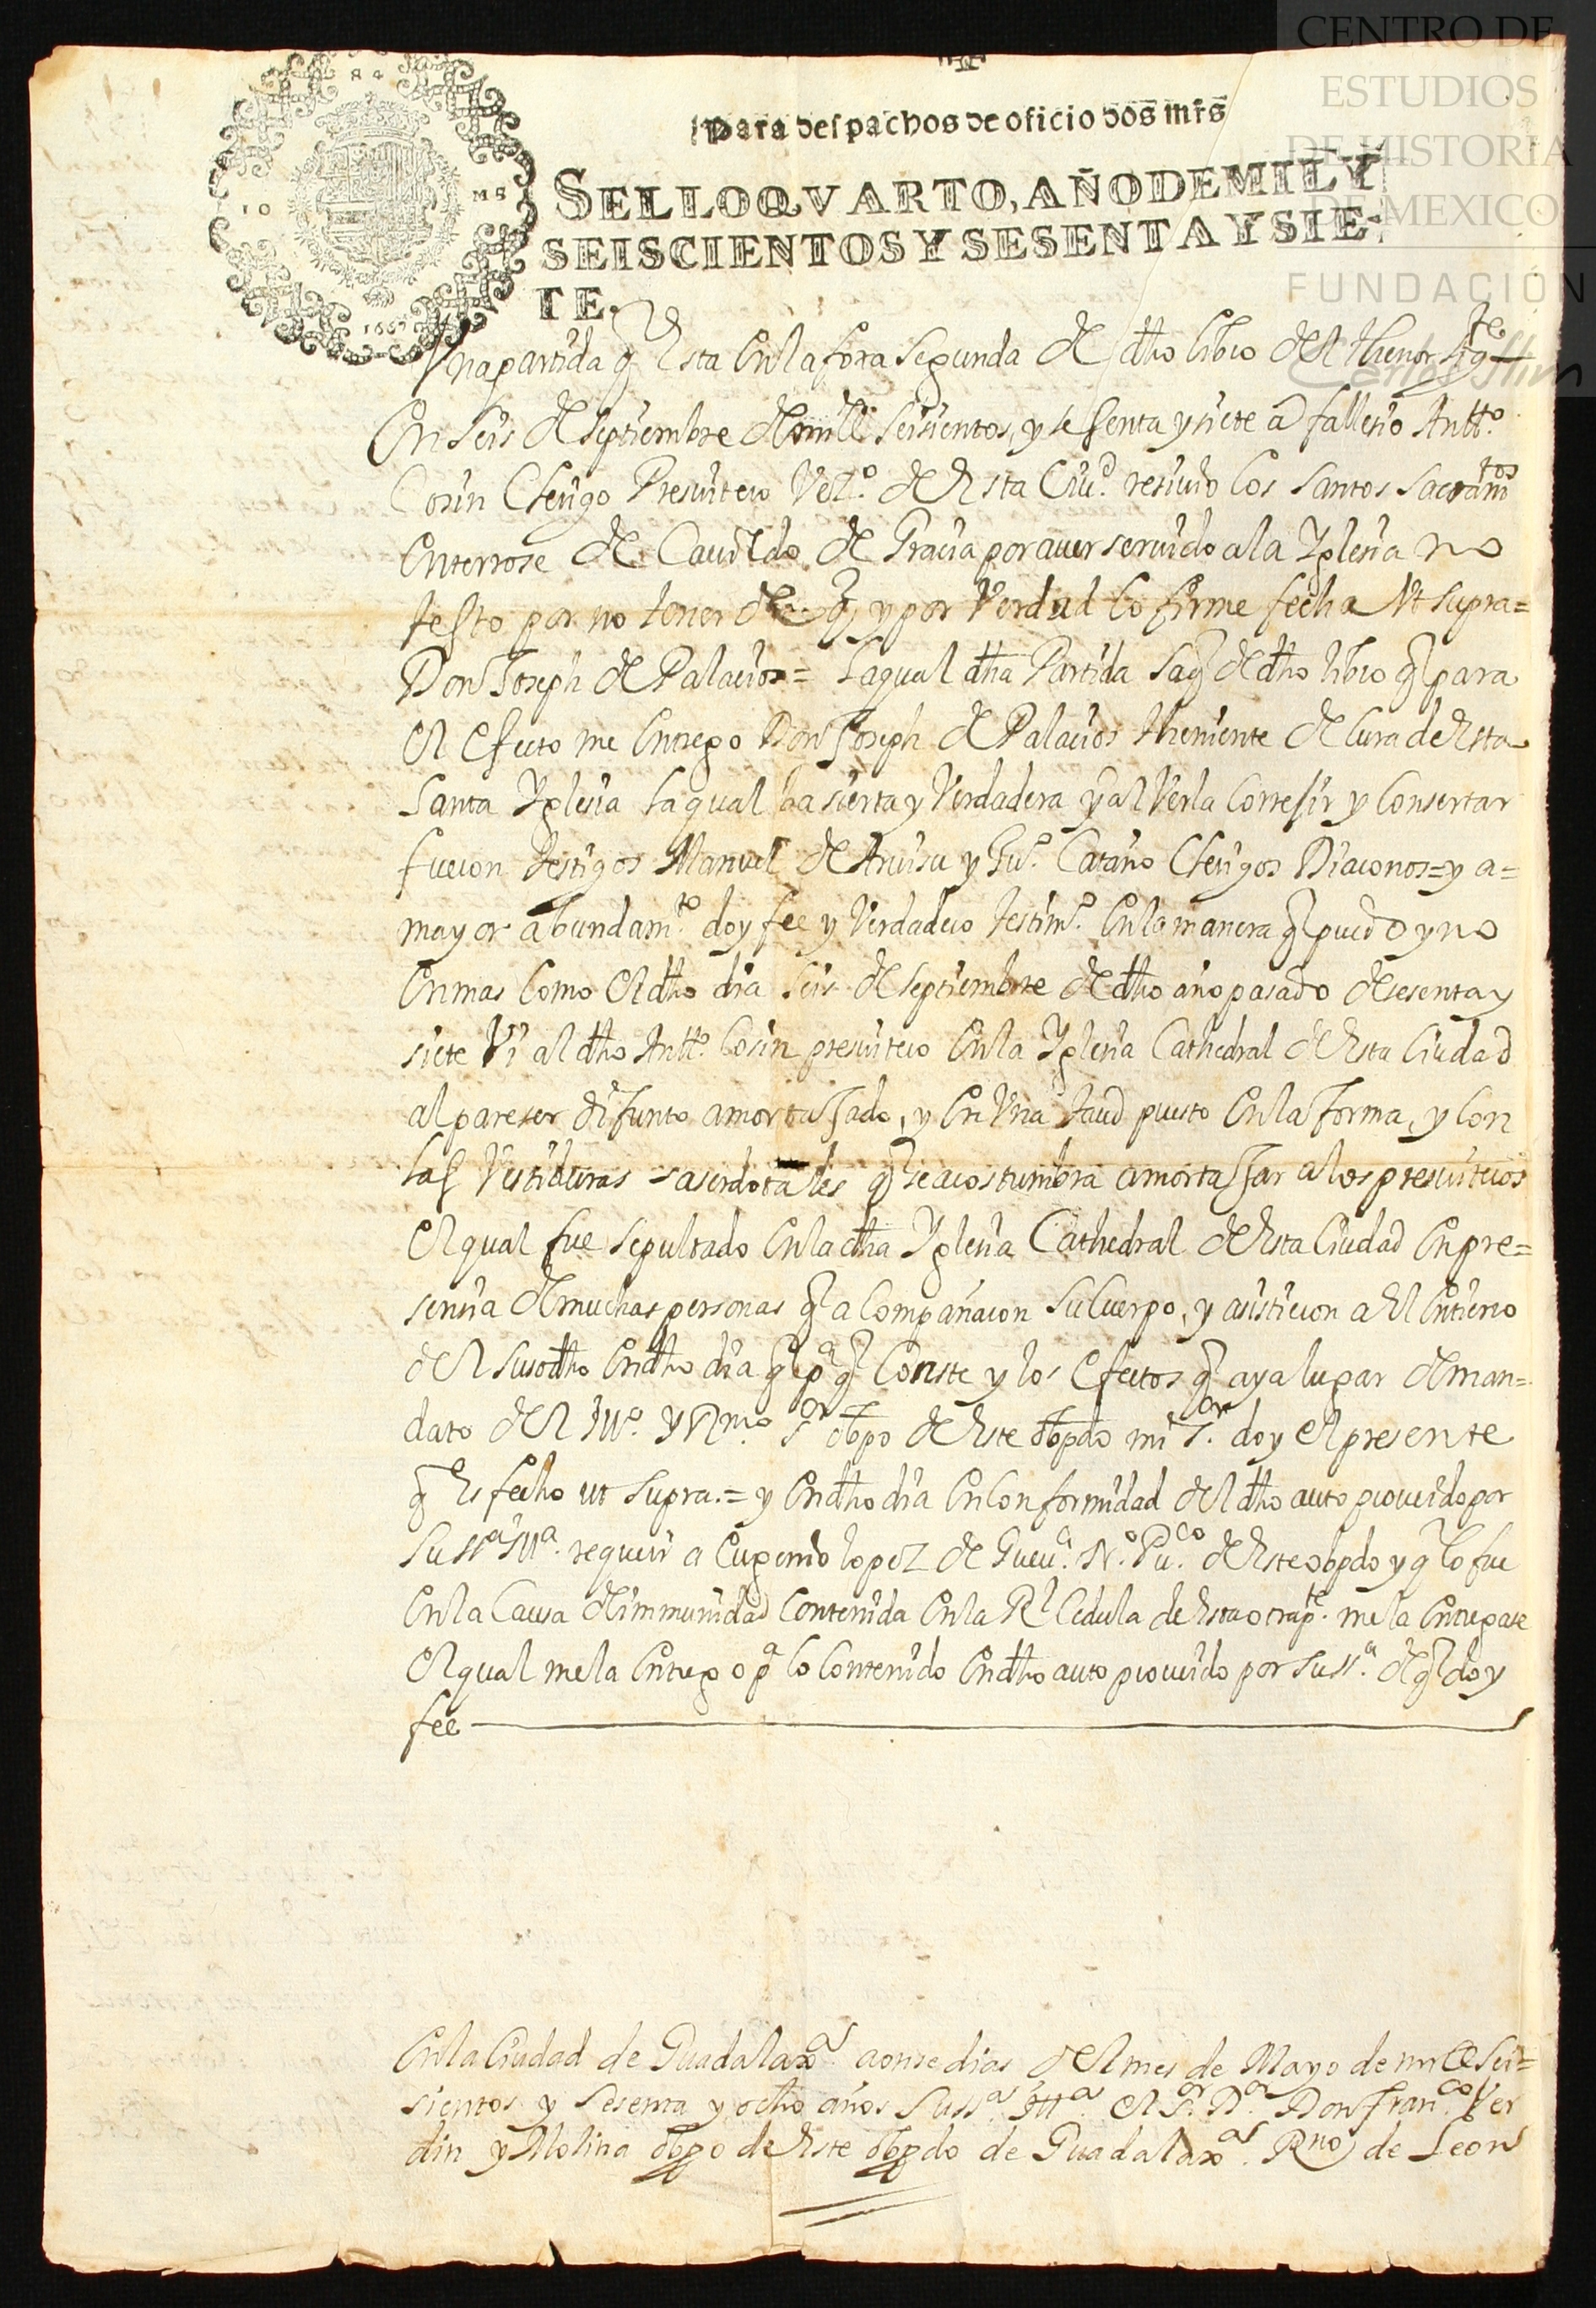 CENTRO DE
ESTUDIOS
DE HISTORIA
DE MEXICO
FUNDACIÓN
Carlos Slim
para despachos de oficio dos mrs
SELLO QVARTO, AÑO DE MIL Y
SEISCIENTOS Y SESENTA Y SIE-
TE.
1667
Vna partida q̃ Esta En la foxa Segunda de dho libro del thenor sigte
En seis de septiembre de mill seisientos, y sesenta y siete años fallesio Antto.
Cosin Clerigo Presuitero Vezo. de Esta Ciud. resiuio los santos sacramtos
Enterrose de Cauildo de Gracia por auer seruido a la Yglesia no
testo por no tener de q̃ y por Verdad lo firme fecha Vt supra=
Don Joseph de Palacios= la qual dha Partida saq̃ de dho libro q̃ para
El Efecto me Entrego Don Joseph de Palacios theniente de Cura de Esta
Santa Yglesia la qual ba sierta y Verdadera y al Verla Corresir y Consertar
fueron testigos Manuel de Aruisu y Gu.o Cataño Clerigos Diaconos= y a=
mayor abundamto. doy fee y Verdadero testimo. En la manera q̃ puedo y no
En mas Como El dho dia seis de septiembre de dho año pasado de sesenta y
siete Vi al dho Antto. Cosin presuitero En la Yglesia Cathedral de Esta Ciudad
al pareser difunto amortajado, y En Vna taud puesto En la forma, y Con
las Vestiduras saserdotales q̃ se acostumbra amortajar a los presuiteros
El qual fue sepultado En la dha Yglesia Cathedral de Esta Ciudad En pre=
sensia de muchas personas q̃ acompañaron su Cuerpo, y asistieron a El Entierro
de El susodho En dho dia q̃ pa q̃ Conste y los Efectos q̃ aya lugar de man=
dato de El Illo. y Rmo. Sor obpo de Este obpdo mi Sor. doy El presente
q̃ Es fecho ut supra.= y En dho dia En Conformidad del dho auto proueido por
Su ssa Illa. requeri a Eugenio lopez de Gueua. No. Puco. de Este obpdo y q̃ lo fue
En la Causa de immunidad Contenida En la Rl Cedula de Esta otra pte. me la Entregase
El qual me la Entrego pa lo Contenido En dho auto proueido por su ssa. de q̃ doy
fee
En la Ciudad de Guadalaxa. a onse dias del mes de Mayo de mill sei=
sientos y sesenta y ocho años Su ssa. Illa. El Sr. Dor. Don Franco. Ver
din y Molina obpo de Este obpdo de Guadalaxa. Rno de Leon